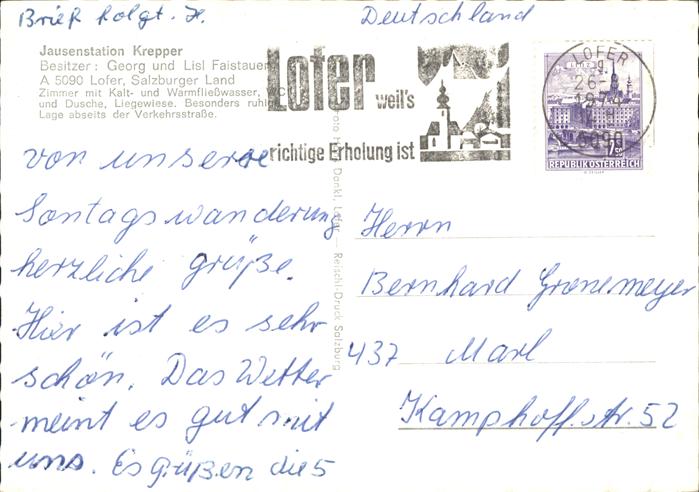 Brief folgt. H.
Deutschland
Jausenstation Krepper
Besitzer: Georg und Lisl Faistauer
A 5090 Lofer, Salzburger Land
Zimmer mit Kalt- und Warmfließwasser, WC
und Dusche, Liegewiese. Besonders ruhige
Lage abseits der Verkehrsstraße.
Lofer weil's
richtige Erholung ist
LOFER
26-8
5090
REPUBLIK ÖSTERREICH
von unserer
Sontagswanderung
herzliche grüße.
Hier ist es sehr
schön. Das Wetter
meint es gut mit
uns. Es grüßen die 5
Dankl, Lofer — Reischl-Druck Salzburg
Herrn
Bernhard Gronemeyer
437 Marl
Kamphoff.str. 52